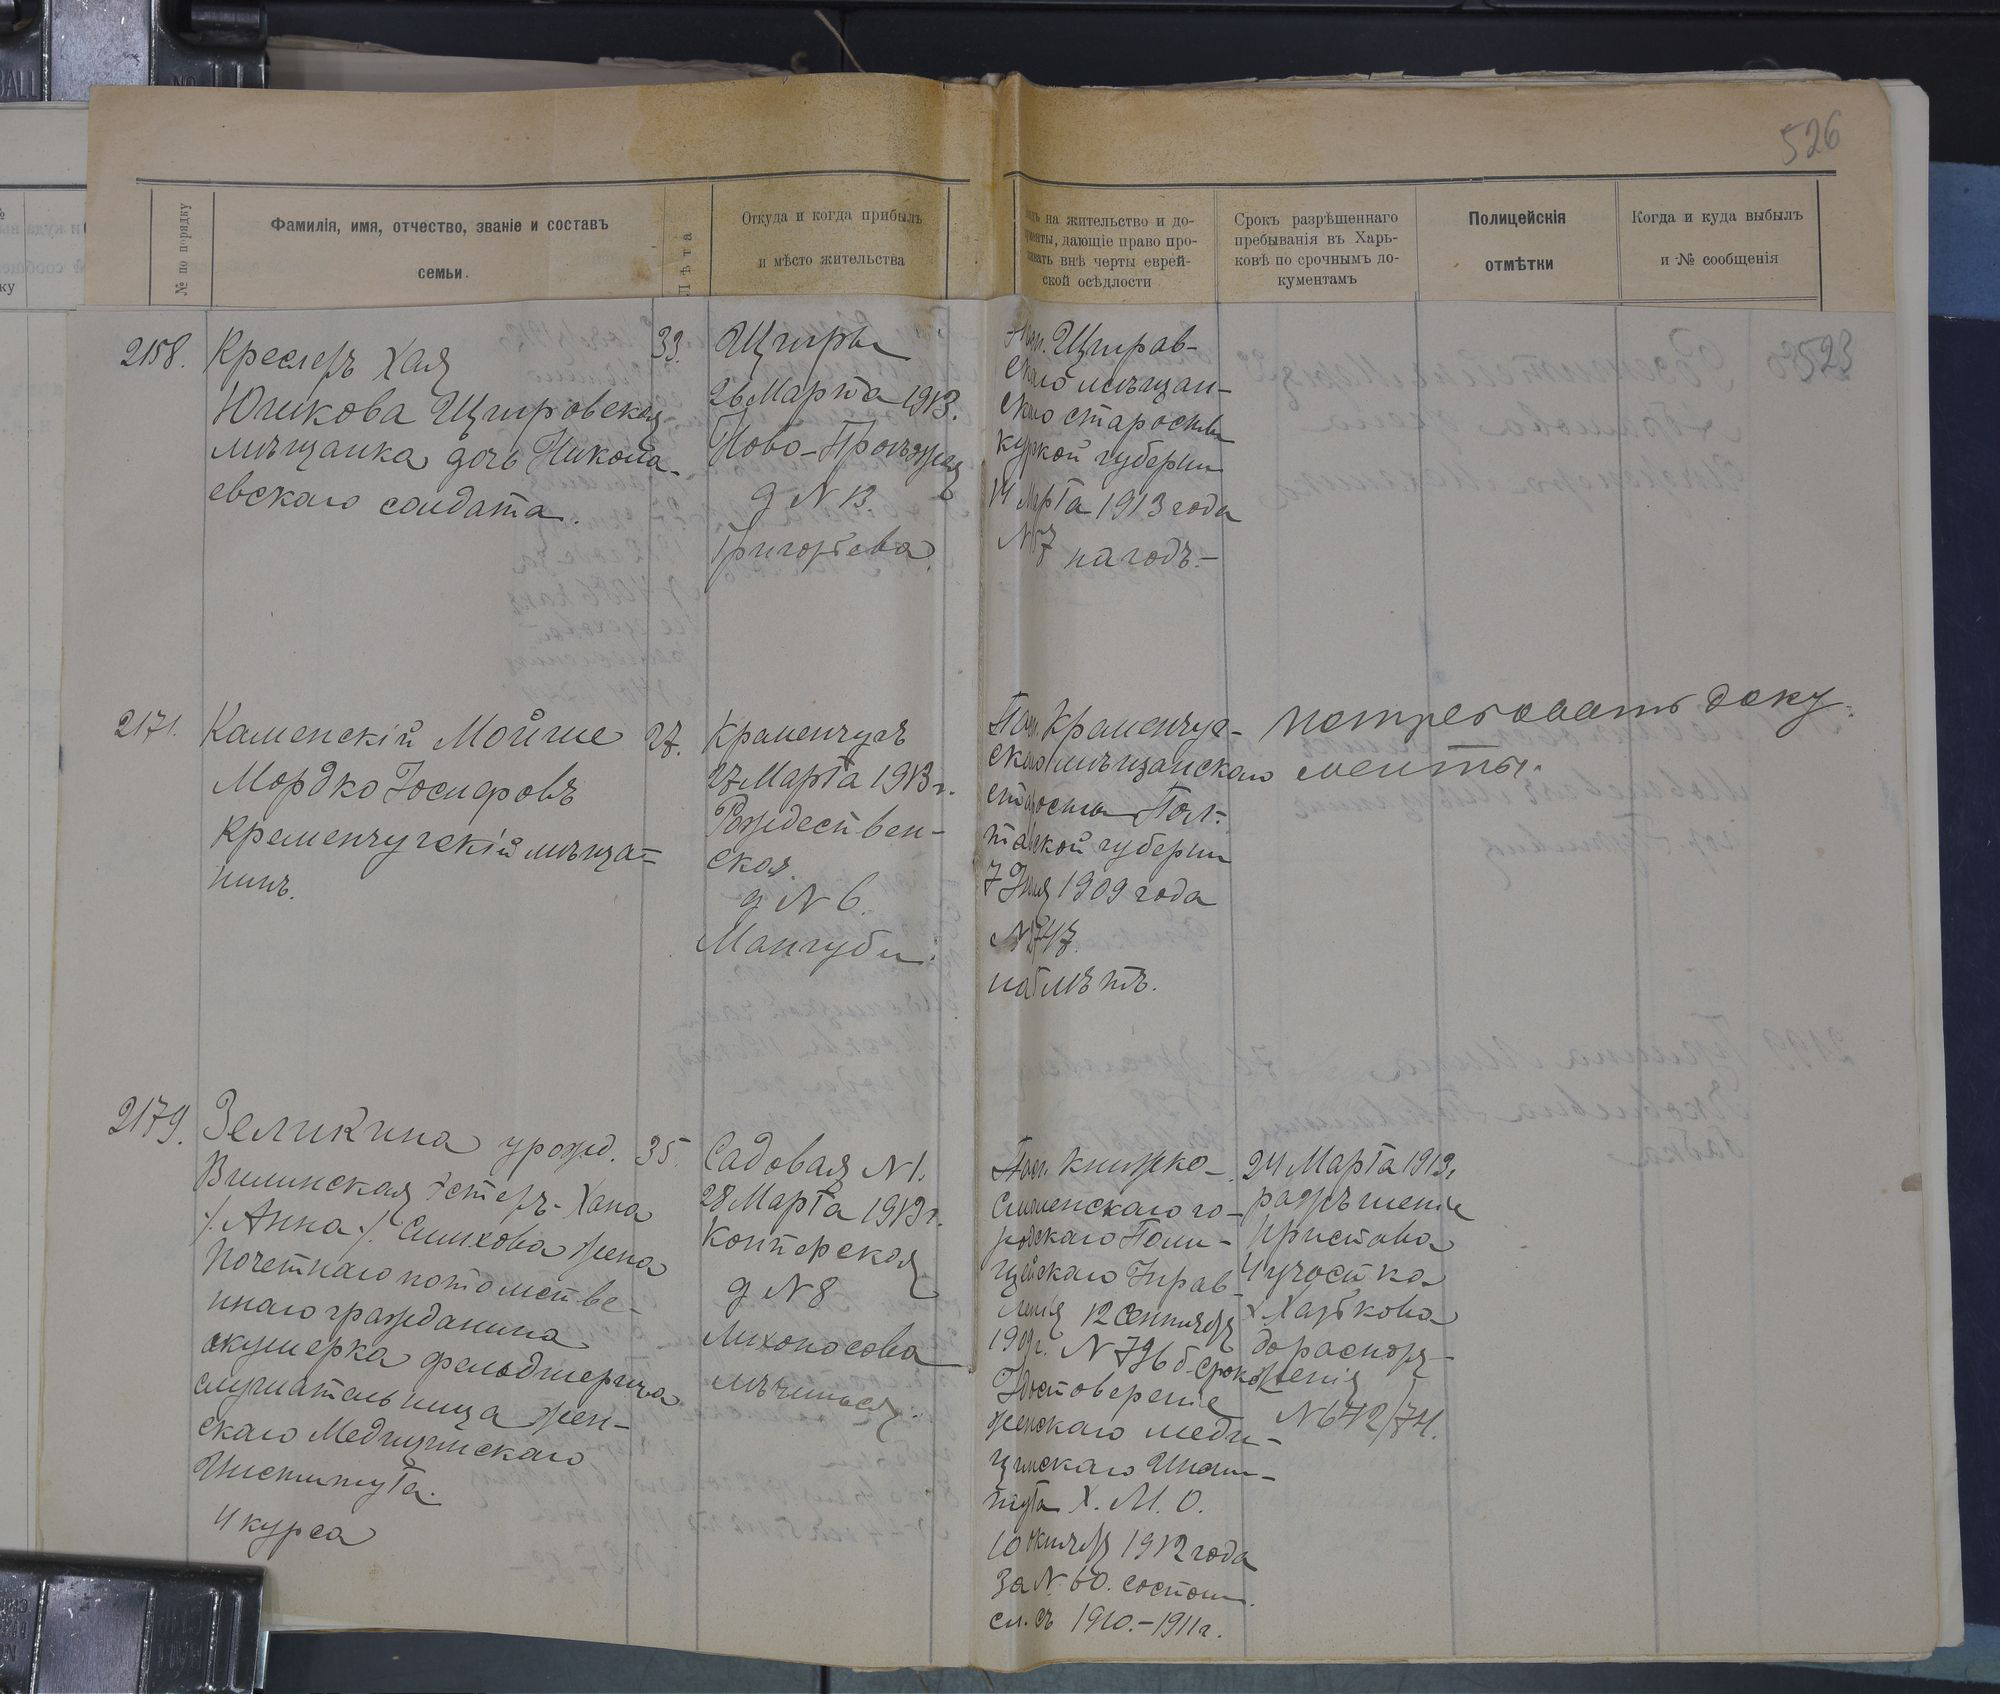 526
№ по порядку
Фамилія, имя, отчество, званіе и составъ
семьи.
Лѣта
Откуда и когда прибылъ
и мѣсто жительства
на жительство и до-
дающіе право про-
внѣ черты еврей-
ской осѣдлости
Срокъ разрѣшеннаго
пребыванія въ Харь-
ковѣ по срочнымъ до-
кументамъ
Полицейскія
отмѣтки
Когда и куда выбылъ
и № сообщенія
2158.
Креслеръ Хая
Юдикова Щигровская
мѣщанка дочь Никола-
евскаго солдата.
33.
Щигры
26 Марта 1913.
Ново-Проѣзжая
д N 13.
Григорьева
Щигров-
скаго мѣщан-
скаго старосты
Курской губерніи
14 Марта 1913 года
N 57 на годъ.-
2171.
Каменскій Мойше
Мордко Іосифовъ
Кременчугскій мѣща-
нинъ.
27.
Кременчугъ
27 Марта 1913 г.
Рождествен-
ская.
д N 6.
Мангуби
Пасп. Кременчуг-
скаго мѣщанскаго
старосты Пол-
тавской губерніи
7 1909 года
N 747.
на 5 лѣтъ.
потребовать доку-
менты.
2179.
Зеликина урожд.
Вилинская Эстеръ-Хана
/. Анна ./ Симхова жена
Почетнаго потомстве-
ннаго гражданина
акушерка фельдшерица
слушательница жен-
скаго Медицинскаго
Института.
4 курса
35.
Садовая N 1.
28 Марта 1913 г.
Конторская
д N 8
Лихоносова
лѣчиться.
Пасп. книжка
Смоленскаго го-
родскаго Поли-
цейскаго Управ-
ленія 12 Сентября
1909 г. N 796 б. срочн
Удостовѣреніе
женскаго меди-
цинскаго Инсти-
тута Х. М. О.
10 Октября 1912 года
За N. 60. состоит.
сл. съ 1910.-1911 г.
24 Марта 1913 г
разрѣшеніе
Пристава
4 участка
г Харькова
до распоря-
женія
N 672/74.